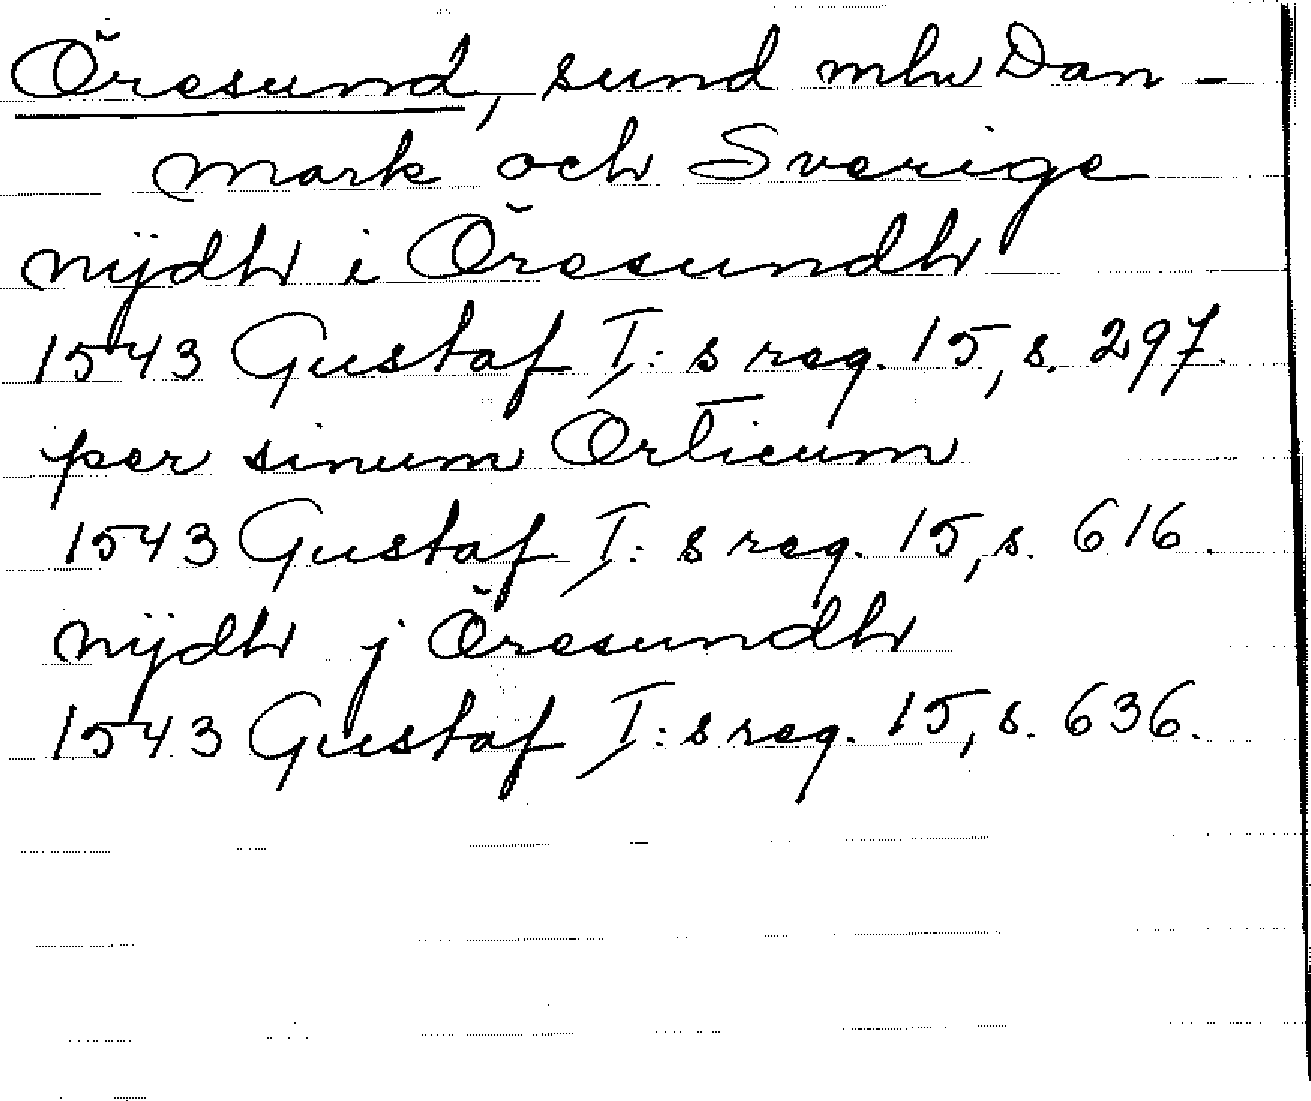 Öresund, sund mlw Dan-
mark och Sverige
nÿdh i Öresundh
1543 Gustaf I:s reg. 15, s. 297.
per sinum Orticum
1543 Gustaf I:s reg. 15, s. 616.
nÿdh j Öresundh
1543 Gustaf I:s reg. 15, s. 636.